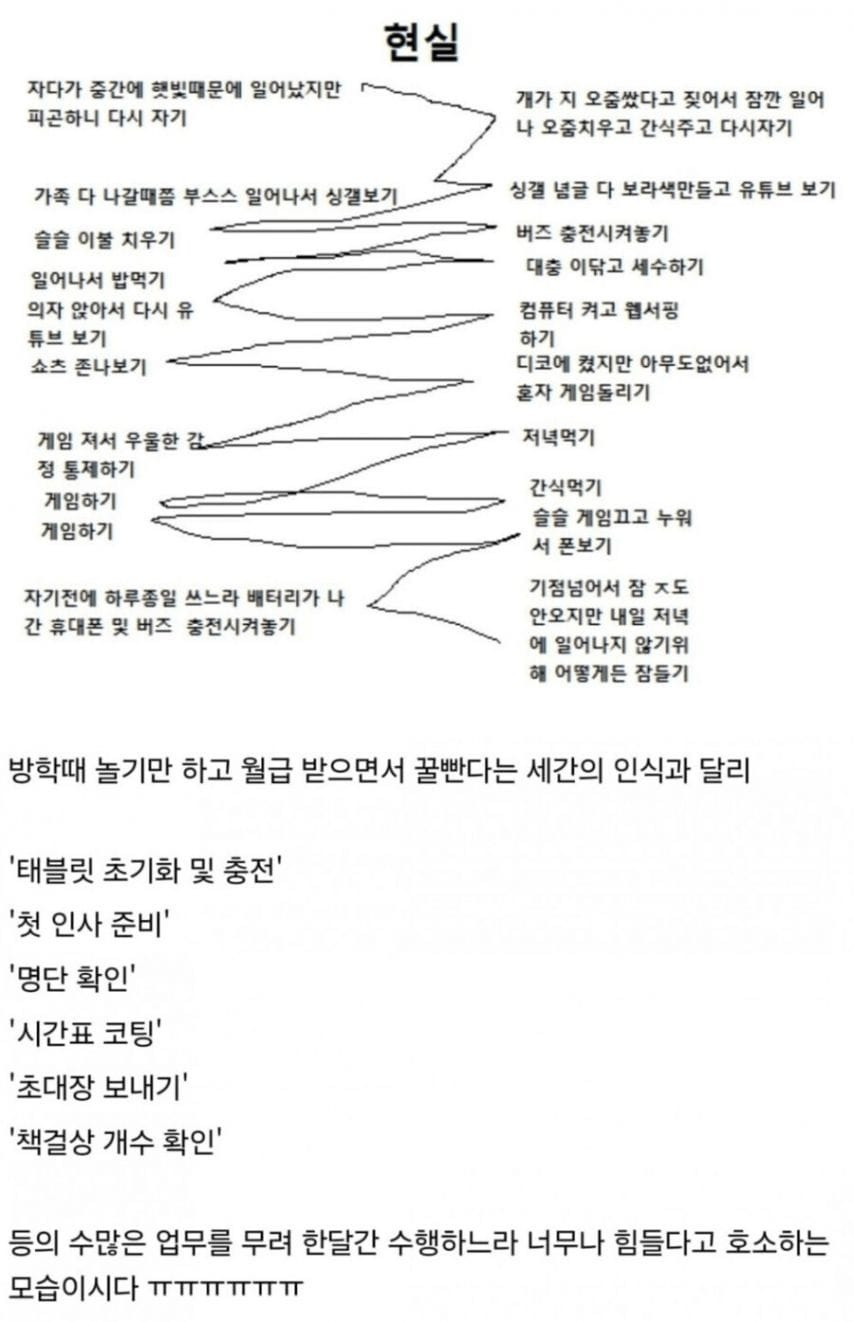 현실
자다가 중간에 햇빛때문에 일어났지만
피곤하니 다시 자기
개가 지 오줌쌌다고 짖어서 잠깐 일어
나 오줌치우고 간식주고 다시자기
가족 다 나갈때쯤 부스스 일어나서 싱갤보기
싱갤 념글 다 보라색만들고 유튜브 보기
슬슬 이불 치우기
버즈 충전시켜놓기
일어나서 밥먹기
대충 이닦고 세수하기
의자 앉아서 다시 유
튜브 보기
컴퓨터 켜고 웹서핑
하기
쇼츠 존나보기
디코에 켰지만 아무도없어서
혼자 게임돌리기
게임 져서 우울한 감
정 통제하기
저녁먹기
게임하기
간식먹기
게임하기
슬슬 게임끄고 누워
서 폰보기
자기전에 하루종일 쓰느라 배터리가 나
간 휴대폰 및 버즈 충전시켜놓기
기점넘어서 잠 ㅈ도
안오지만 내일 저녁
에 일어나지 않기위
해 어떻게든 잠들기
방학때 놀기만 하고 월급 받으면서 꿀빤다는 세간의 인식과 달리
'태블릿 초기화 및 충전'
'첫 인사 준비'
'명단 확인'
'시간표 코팅'
'초대장 보내기'
'책걸상 개수 확인'
등의 수많은 업무를 무려 한달간 수행하느라 너무나 힘들다고 호소하는
모습이시다 ㅠㅠㅠㅠㅠㅠ